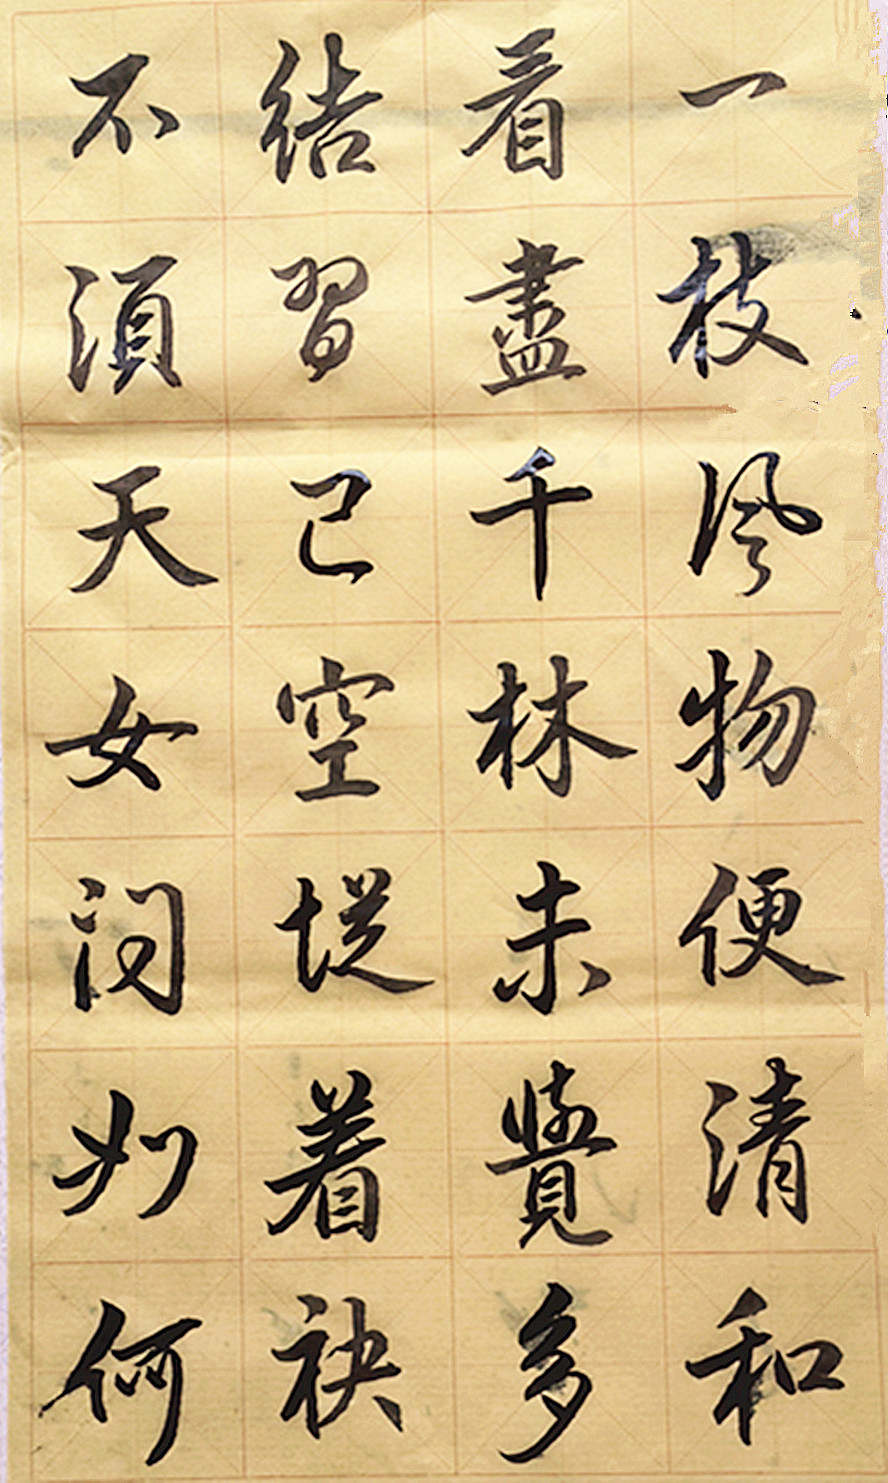 一枝風物便清和
看盡千林未覺多
結習已空從着袂
不須天女問如何